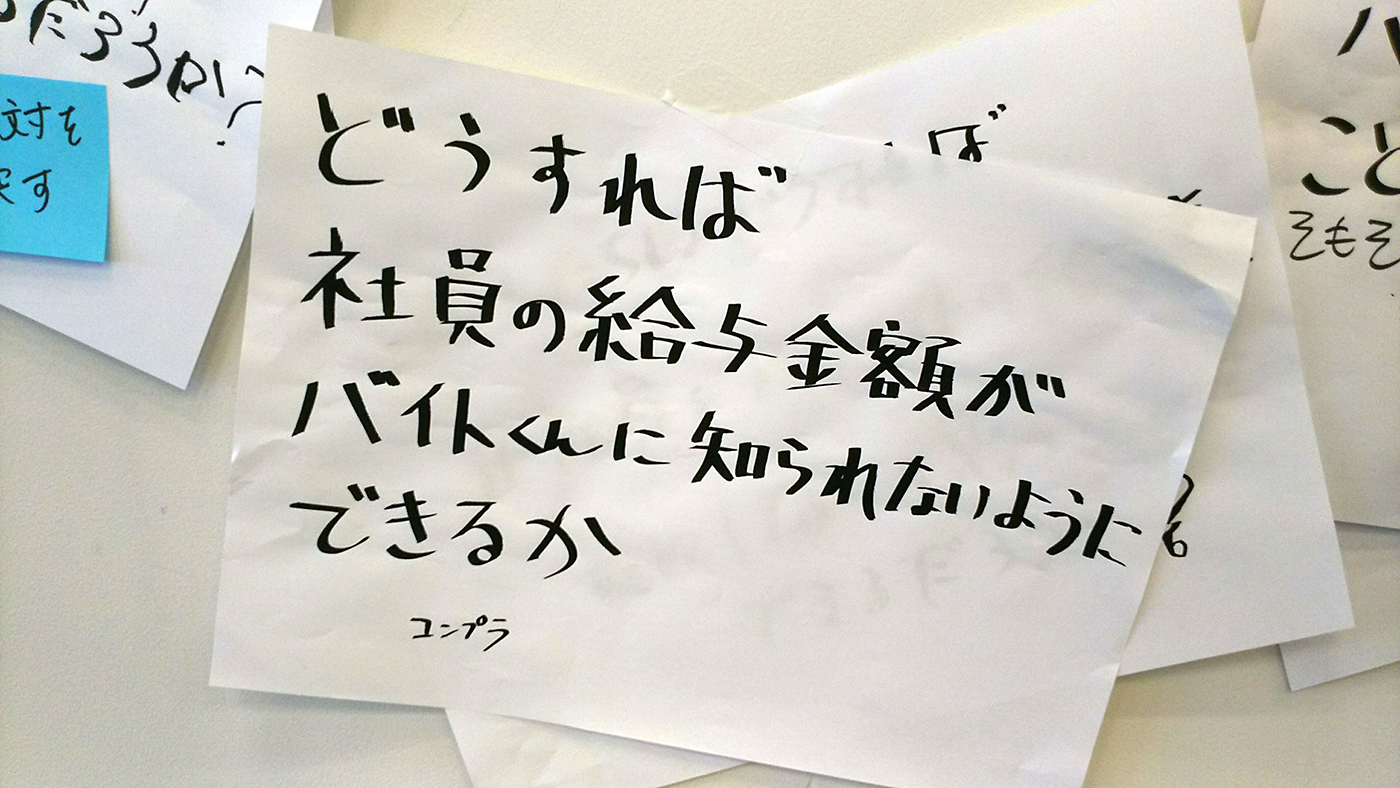 どうすれば
社員の給与金額が
バイトくんに知られないように
できるか
コンプラ
だろうか?
対を
す
ば
こと
そもそ